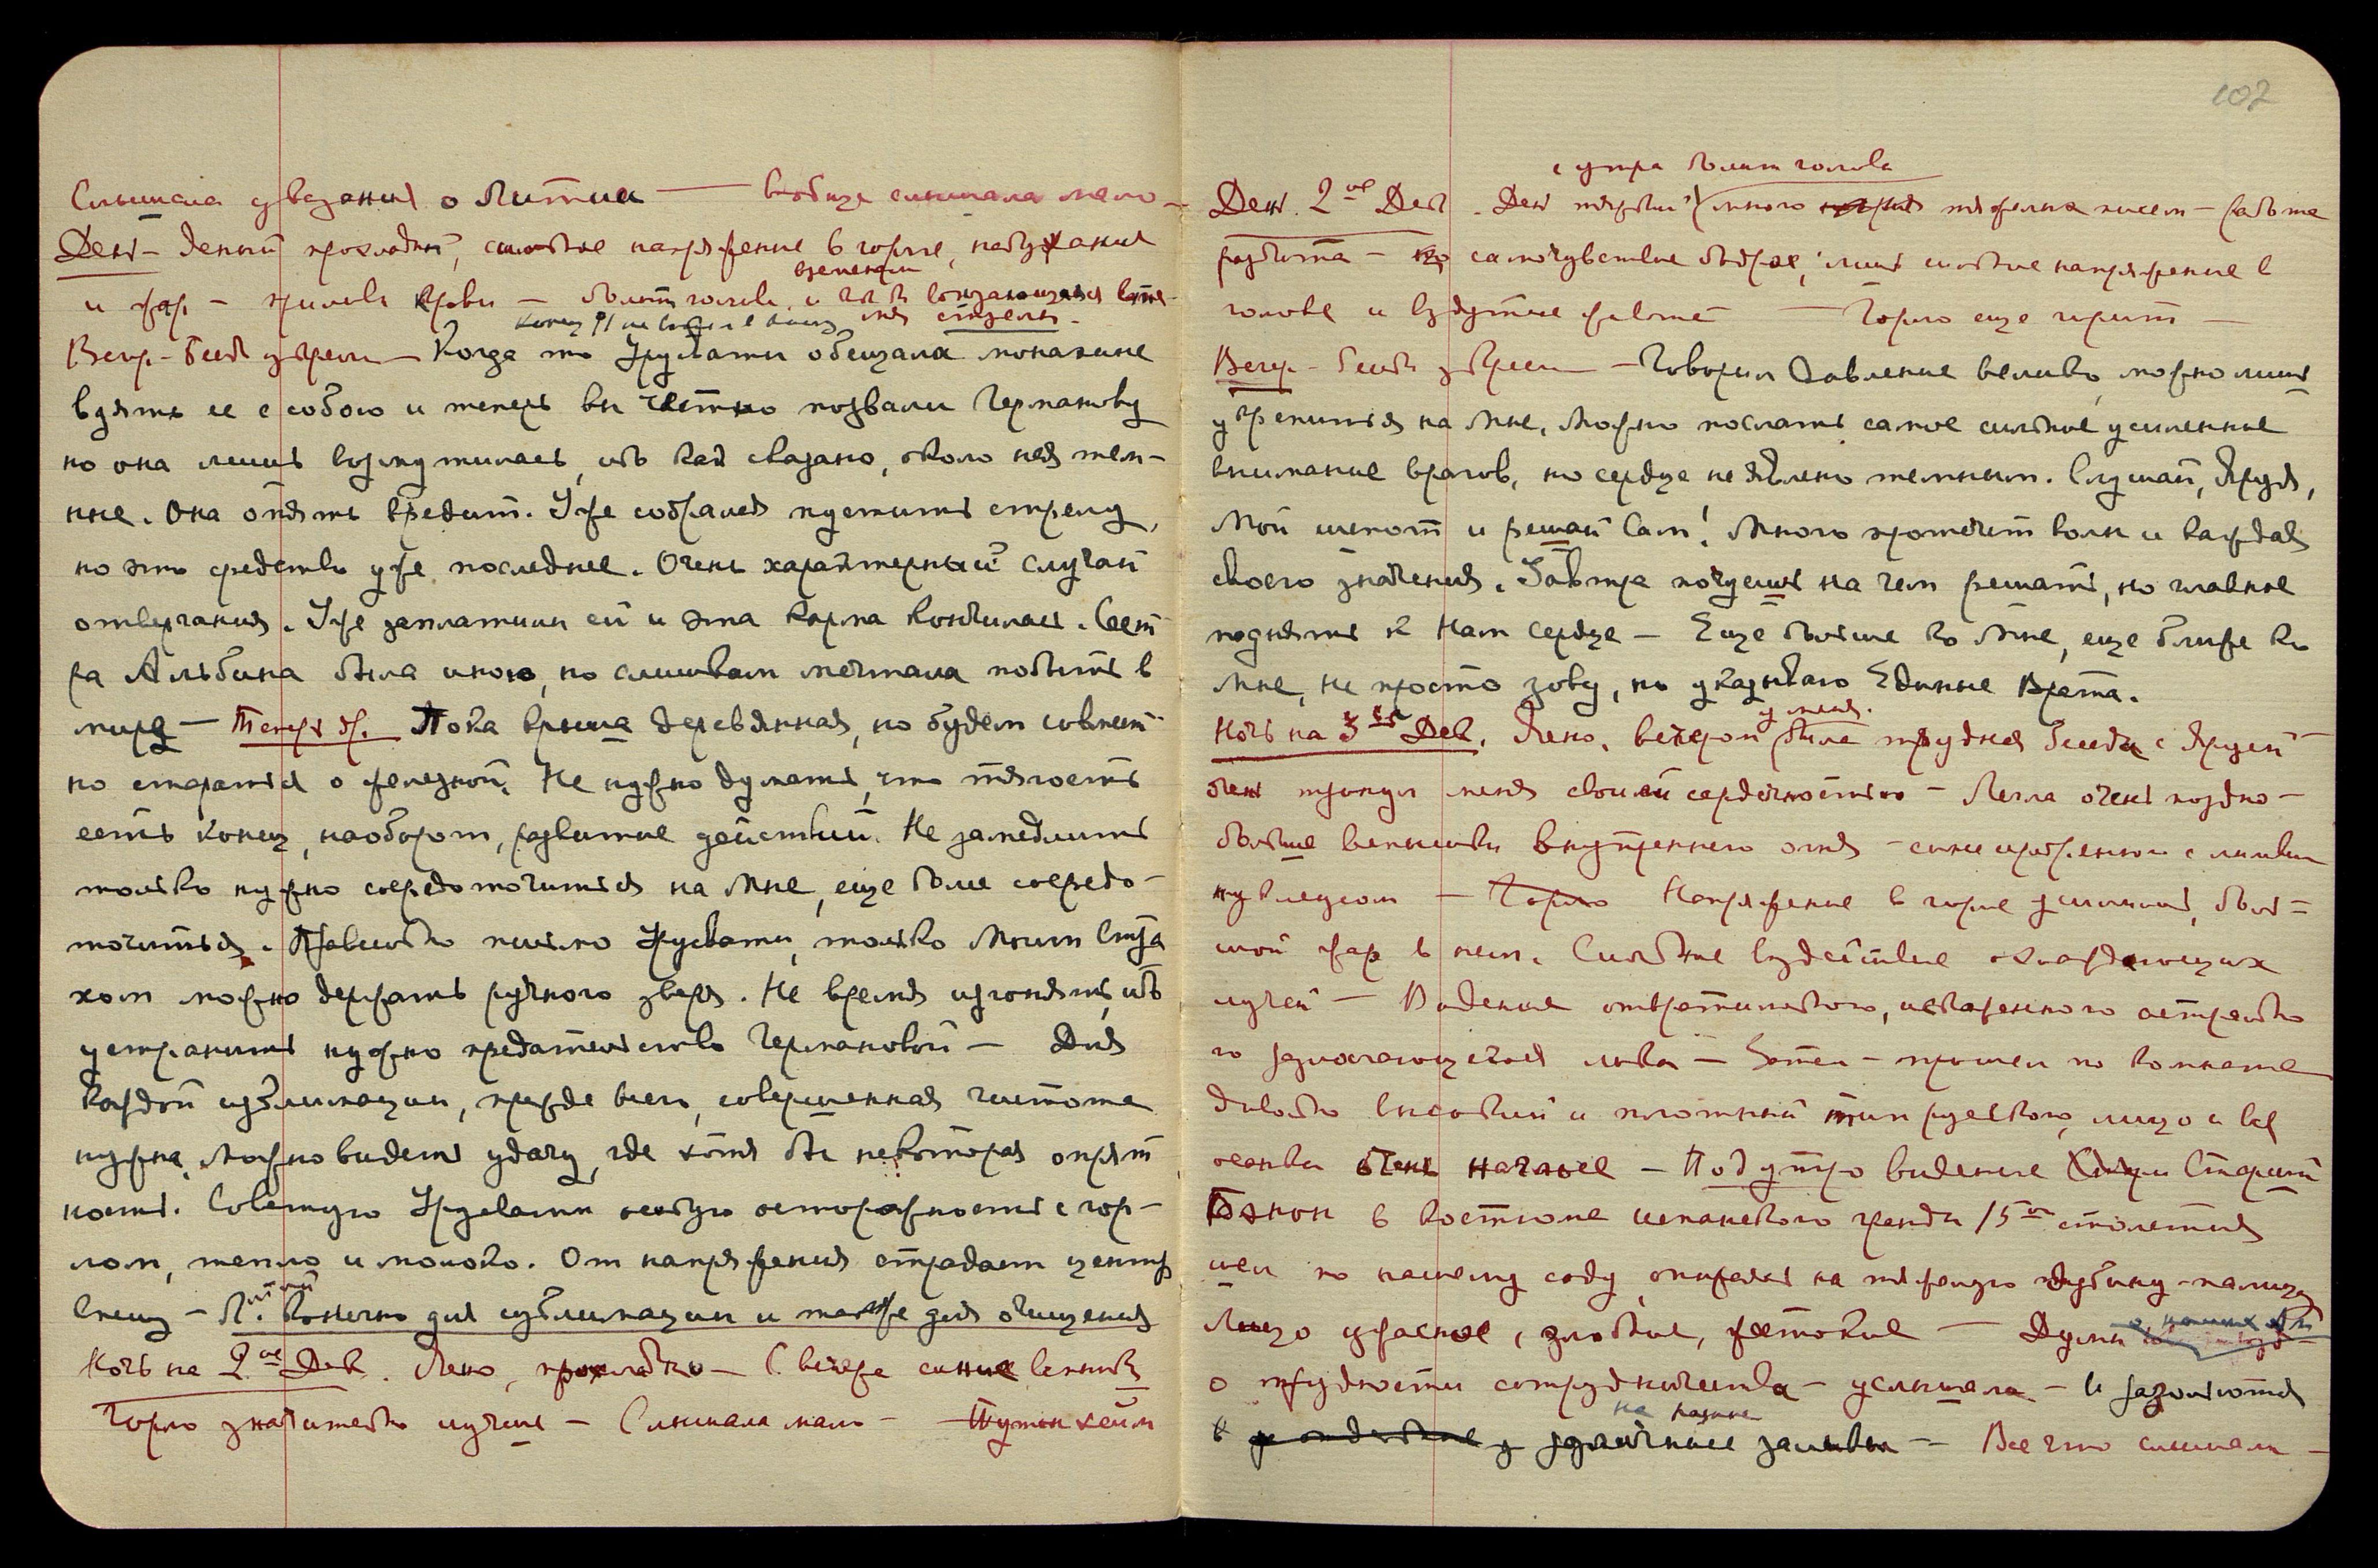 Слышала указания о Литии — вообще слышала мало —
День — денный прохладный, сильное напряжение в горле, набухания
и жар — приливы крови — болит голова
Вечер — Беседа утрем — Когда то Урусвати обещала монахине
взять ее с собою и теперь вы честно позвали Германову
но она лишь возмутилась, ибо как сказано, около нея тем-
ные. Она опять вредит. Уже собрался пустить стрелу,
но это средство уже последнее. Очень характерный случай
отвергания. Уже заплатили ей и эта карма кончилась. Сест
ра Альбина была иною, но слишком мечтала побыть в
миру — Пока крыша деревянная, но будем совмест
но стараться о железной. Не нужно думать, что тягость
есть конец, наоборот, развитие действий. Не замедлить
только нужно сосредоточиться на Мне, еще более сосредо-
точиться. Правильно письмо Урусвати, только Моим Стра
хом можно держать ручного зверя. Не время изгонять, ибо
устранить нужно предательство Германовой — Для
каждой сублимации, прежде всего, совершенная чистота
нужна. Можно видеть удачу, где хотя бы некоторая опрят
ность. Советую Урусвати особую осторожность с гор-
лом, тепло и молоко. От напряжения страдает центр
внизу — Л. конечно для сублимации и также для очищения
Ночь на 2ое Дек. Ясно, прохладно — С вечера синие вспышк
Горло значительно лучше — Слышала мало —
107
с утра болит голова
День. 2ое Дек. День тяжкий много тяжелых писем — работа
разбита — но самочувствие бодрое, лишь сильное напряжение в
голове и вздутие живота — Горло еще горит —
Вечер — беседа утрем — Говорил Давление велико, можно лишь
укрепиться на Мне. Можно послать самое сильное усиленное
внимание врагов, но сердце не явлено темным. Слушай, Яруя,
Мой шепот и решай Сам! Много протечет волн и каждая
своего значения. Завтра почуешь на чем решать, но главное
поднять к Нам сердце — Еще больше ко Мне, еще ближе ко
Мне, не просто зову, но указываю Единые Врата.
у меня.
Ночь на 3ье Дек. Ясно. вечером была трудная беседа с Яруей
очень тронул меня своей сердечностью — Легла очень поздно —
больше вспышки внутреннего огня —
нуклеусом — Горло Напряжение в горле усилилось, боль=
шой жар в нем. Сильное воздействие охлаждающих
лучей — Видение отвратительного, искаженного
го разлагающегося лика — Затем — прошел по комнате
довольно высокий и плотный тип русского, лицо и вся
осанка очень наглое — Под утро видение Старый
в костюме испанского гранда 15го столетия
шел по нашему саду, опираясь на тяжелую дубину-палицу
Лицо ужасное, злобное, жестокое — Думы
о трудности сотрудничества — услышала — и разольются
в различные заливы — Все что слышала —